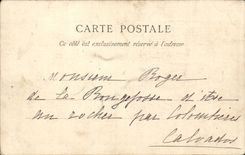 CARTE POSTALE
Ce côté est exclusivement réservé à l'adresse
Monsieur Roger
de La Bougefosse d'itre
au rocher par Colombières
Calvados